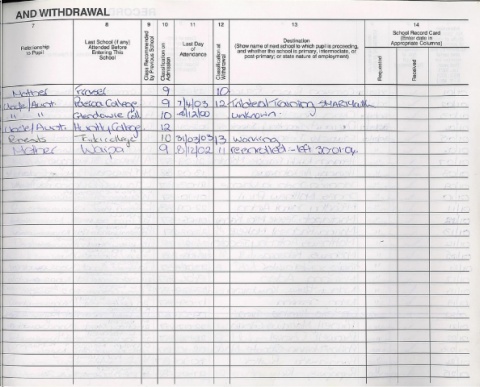 AND WITHDRAWAL
7 8 9 10 11 12 13 14
Relationship to Pupil
Last School (if any) Attended Before Entering This School
Class Recommended by Previous School
Classification on Admission
Last Day of Attendance
Classification at Withdrawal
Destination
(Show name of next school to which pupil is proceeding, and whether the school is primary, intermediate, or post-primary; or state nature of employment).
School Record Card
(Enter date in Appropriate Columns)
Requested
Received
Mother 9 10
Uncle/Aunt College 9 7/4/03 12 Training
" " Glendowie Coll 10 8/12/00 unknown
Uncle/Aunt Huntly College 12
Parents College 10 31/03/03 13 working
Mother 9 8/12/02 11 left 30.01.04